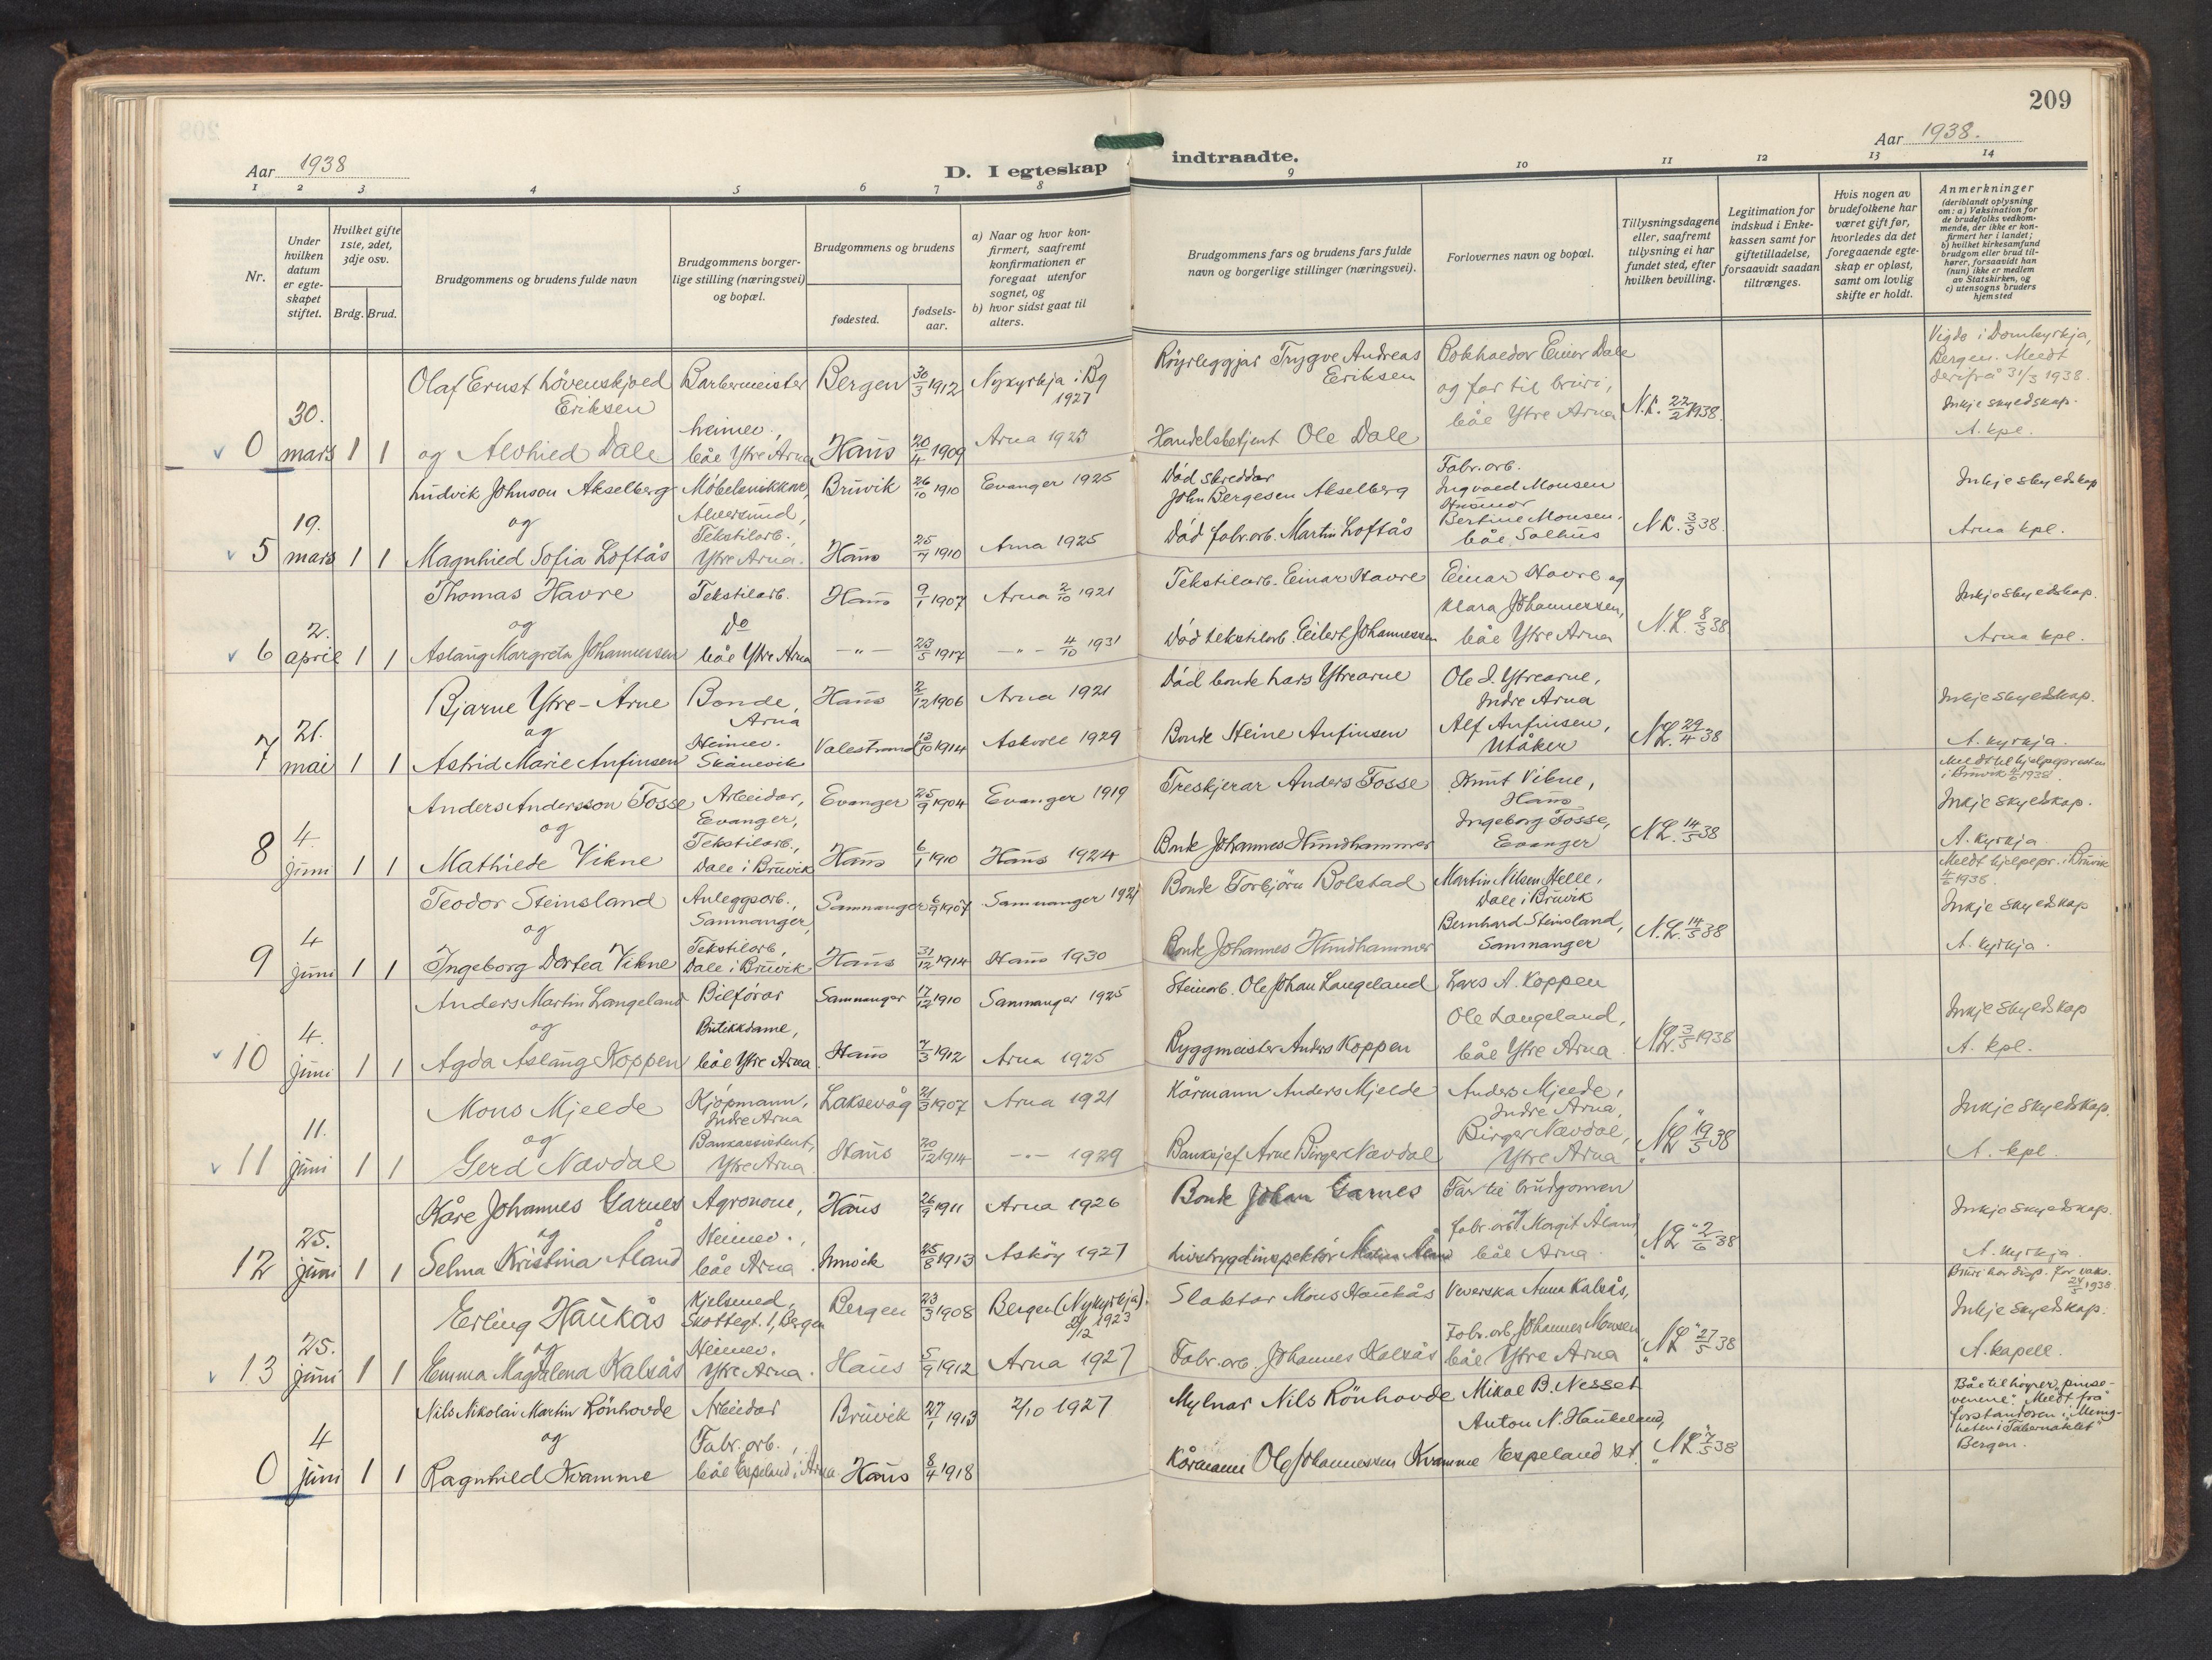 209
Aar 1938
D. I egteskap
indtraadte.
Aar 1938.
1 2 3 4 5 6 7 8 9 10 11 12 13 14
Nr.
Under hvilken datum er egteskapet stiftet.
Hvilket gifte 1ste, 2det, 3dje osv.
Brdg. Brud.
Brudgommens og brudens fulde navn
Brudgommens borgerlige stilling (næringsvei) og bopæl.
Brudgommens og brudens
fødested.
fødselsaar.
a) Naar og hvor konfirmert, saafremt konfirmationen er foregaat utenfor sognet, og
b) hvor sidst gaat til alters.
Brudgommens fars og brudens fars fulde navn og borgerlige stillinger (næringsvei).
Forlovernes navn og bopæl.
Tillysningsdagene eller, saafremt tillysning ei har fundet sted, efter hvilken bevilling.
Legitimation for indskud i Enkekassen samt for giftetilladelse, forsaavidt saadan tiltrænges.
Hvis nogen av brudefolkene har været gift før, hvorledes da det foregaaende egteskap er opløst, samt om lovlig skifte er holdt.
Anmerkninger
(deriblandt oplysning om: a) Vaksination for de brudefolks vedkommende, der ikke er konfirmert her i landet;
b) hvilket kirkesamfund brudgom eller brud tilhører, forsaavidt han (hun) ikke er medlem av Statskirken, og
c) utensogns bruders hjemsted
0 30. mars 1 1
Olaf Ernst Løvenskjold Eriksen
Barbermeister
Bergen 30/3 1912
Nykyrkja i Bg 1927
Røyrleggjar Trygve Andreas Eriksen
Bokhaldar Einar Dale og far til bruri, båe Ytre Arna
N.L. 22/2 1938.
Vigde i Domkyrkja, Bergen. Meldt derifrå 31/3 1938.
Inkje skyldskap.
A. kpl.
og Alvhild Dale
heimev., båe Ytre Arna
Haus 20/4 1909
Arna 1923
Handelsbetjent Ole Dale
5 19. mars 1 1
Ludvik Johnson Akselberg
Møbelsnikkar, Alversund,
Bruvik 26/10 1910
Evanger 1925
Død skreddar John Bergesen Akselberg
Fabr. arb. Ingvald Monsen
Husmor Bertine Monsen, båe Salhus
N.L. 3/3 38.
Inkje skyldskap
Arna kpl.
og
Magnhild Sofia Loftås
Tekstilarb., Ytre Arna.
Haus 25/7 1910
Arna 1925
Død fabr. arb. Martin Loftås
6 2. april 1 1
Thomas Havre
Tekstilarb.
Haus 9/1 1907
Arna 2/10 1921
Tekstilarb. Einar Havre
Einar Havre og Klara Johannessen, båe Ytre Arna
N.L. 8/3 38
Inkje skyldskap.
Arna kpl.
og
Aslaug Margreta Johannessen
Do båe Ytre Arna
-"- 23/5 1917
-"- 4/10 1931
Død tekstilarb. Eilert Johannessen
7 21. mai 1 1
Bjarne Ytre-Arne
Bonde, Arna
Haus 2/12 1906
Arna 1921
Død bonde Lars Ytrearne
Ole I. Ytrearne, Indre Arna
Alf Anfinsen, Utåker
N.L. 29/4 38
Inkje skyldskap.
A. kyrkja.
og
Astrid Marie Anfinsen
Heimev. Skånevik
Valestrand 13/10 1914
Askvoll 1929
Bonde Steine Anfinsen
8 4. juni 1 1
Anders Andersson Fosse
Arbeidar, Evanger,
Evanger 25/9 1904
Evanger 1919
Treskjerar Anders Fosse
Knut Vikne, Haus
Ingeborg Fosse, Evanger
N.L. 14/5 38
Meldt til hjelpepresten i Bruvik 4/6 1938.
Inkje skyldskap.
A. kyrkja.
og
Mathilde Vikne
Tekstilarb., Dale i Bruvik
Haus 6/1 1910
Haus 1924
Bonde Johannes Hundhammer
9 4 juni 1 1
Teodor Steinsland
Anleggsarb., Samnanger,
Samnanger 6/9 1907
Samnanger 1921
Bonde Torbjörn Bolstad
Martin Nilsen Helle, Dale i Bruvik
Bernhard Steinsland, Samnanger
N.L. 14/5 38
Meldt hjelpepr. i Bruvik 4/6 1938.
Inkje skyldskap
A. kyrkja.
og
Ingeborg Dortea Vikne
Tekstilarb., Dale i Bruvik
Haus 31/12 1914
Haus 1930
Bonde Johannes Hundhammer
10 4. juni 1 1
Anders Martin Langeland
Bilförar
Samnanger 17/12 1910
Samnanger 1925
Steinarb. Ole Johan Langeland
Lars A. Koppen
Ole Langeland, båe Ytre Arna
N.L. 3/5 1938
Inkje skyldskap
A. kpl.
og
Agda Aslaug Koppen
Butikkdame, båe Ytre Arna.
Haus 7/3 1912
Arna 1925
Byggmeister Anders Koppen
11 11. juni 1 1
Mons Mjelde
Kjöpmann, Indre Arna
Laksevåg 21/3 1907
Arna 1921
Kårmann Anders Mjelde
Anders Mjelde, Indre Arna,
Birger Nævdal, Ytre Arna
N.L. 19/5 38
Inkje skyldskap.
A. kpl.
og
Gerd Nævdal
Bankassistent, Ytre Arna.
Haus 20/12 1914
-"- 1929
Banksjef Arne Birger Nævdal
12 25. juni 1 1
Kåre Johannes Garnes
Agronom,
Haus 26/9 1911
Arna 1926
Bonde Johan Garnes
Far til brudgomen
fabr. arb. Margit Åland, båe Arna.
N.L. 2/6 38
Inkje skyldskap.
A. kyrkja.
og
Selma Kristina Åland
Heimev., båe Arna.
25/8 1913
Asköy 1927
13 25. juni 1 1
Erling Haukås
Kjelsmed, Skottegt. 1, Bergen
Bergen 23/3 1908
Bergen (Nykyrkja). 2/12 1923
Slaktar Mons Haukås
Veverska Anna Kalsås,
Fabr. arb. Johannes Monsen, båe Ytre Arna
N.L. 27/5 38
Bruri har disp. for vaks. 24/5 1938
Inkje skyldskap.
A. kapell.
og
Emma Magdalena Kalsås
Heimev. Ytre Arna.
Haus 5/9 1912
Arna 1927
Fabr. arb. Johannes Kalsås
0 4 juni 1 1
Nils Nikolai Martin Rönhovde
Arbeidar
Bruvik 27/1 1913
2/10 1927
Mylnar Nils Rönhovde
Mikal B. Nesset
Anton N. Haukeland, Espeland st.
N.L. 7/5 38
Båe tilhøyrer "pinsevenene". Meldt frå forstandaren i "Menigheten i Tabernaklet" Bergen.
og
Ragnhild Kvamme
Fabr. arb., båe Espeland i Arna.
Haus 8/4 1918
Kårmann Ole Johannessen Kvamme